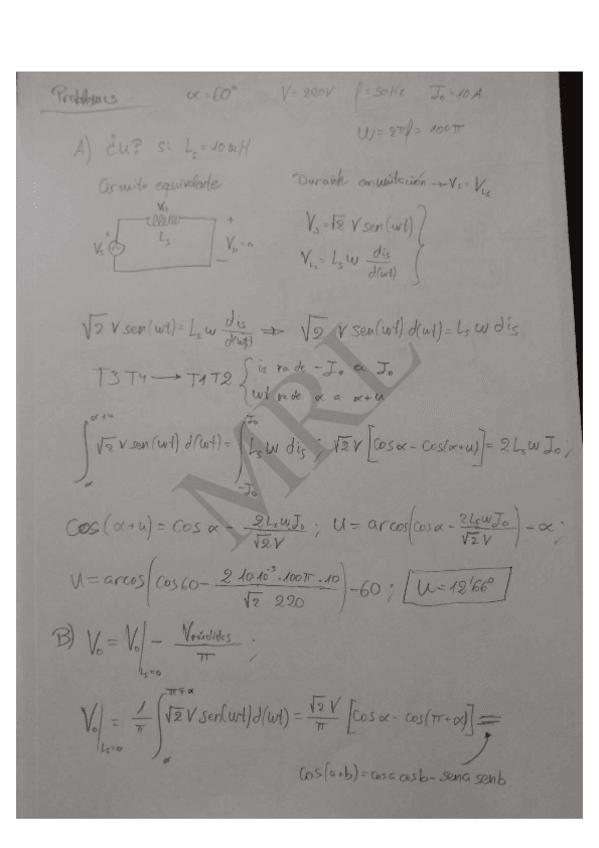 Problemas α=60° V=220V f=50Hz I₀=10A
W=2πf=100π
A) ¿u? si Lₛ=10mH
Circuito equivalente Durante conmutación → Vₛ=V_Lₛ
Vₛ=√2 V sen(wt)
V_Lₛ = Lₛ w diₛ/d(wt)
Vₛ Lₛ V₀=0
√2 V sen(wt) = Lₛ w diₛ/d(wt) ⇒ √2 V sen(wt) d(wt) = Lₛ w diₛ
T3 T4 → T1 T2 { iₛ va de -I₀ a I₀
wt va de α a α+u
∫_α^{α+u} √2 V sen(wt) d(wt) = ∫_{-I₀}^{I₀} Lₛ w diₛ ; √2 V [cosα - cos(α+u)] = 2 Lₛ w I₀ ;
Cos(α+u) = cosα - 2LₛwI₀/√2V ; u = arcos(cosα - 2LₛwI₀/√2V) - α ;
u = arcos(cos60 - 2·10·10⁻³·100π·10/√2 220) - 60 ; u=12'66°
B) V₀ = V₀|_{Lₛ=0} - Vperdidas/π ;
V₀|_{Lₛ=0} = 1/π ∫_α^{π+α} √2 V sen(wt) d(wt) = √2V/π [cosα - cos(π+α)] =
cos(a+b) = cosa cosb - sena senb
MRL